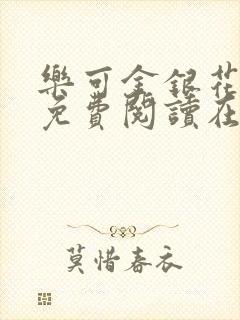 樂可金銀花
免費閱讀在
莫惜春衣